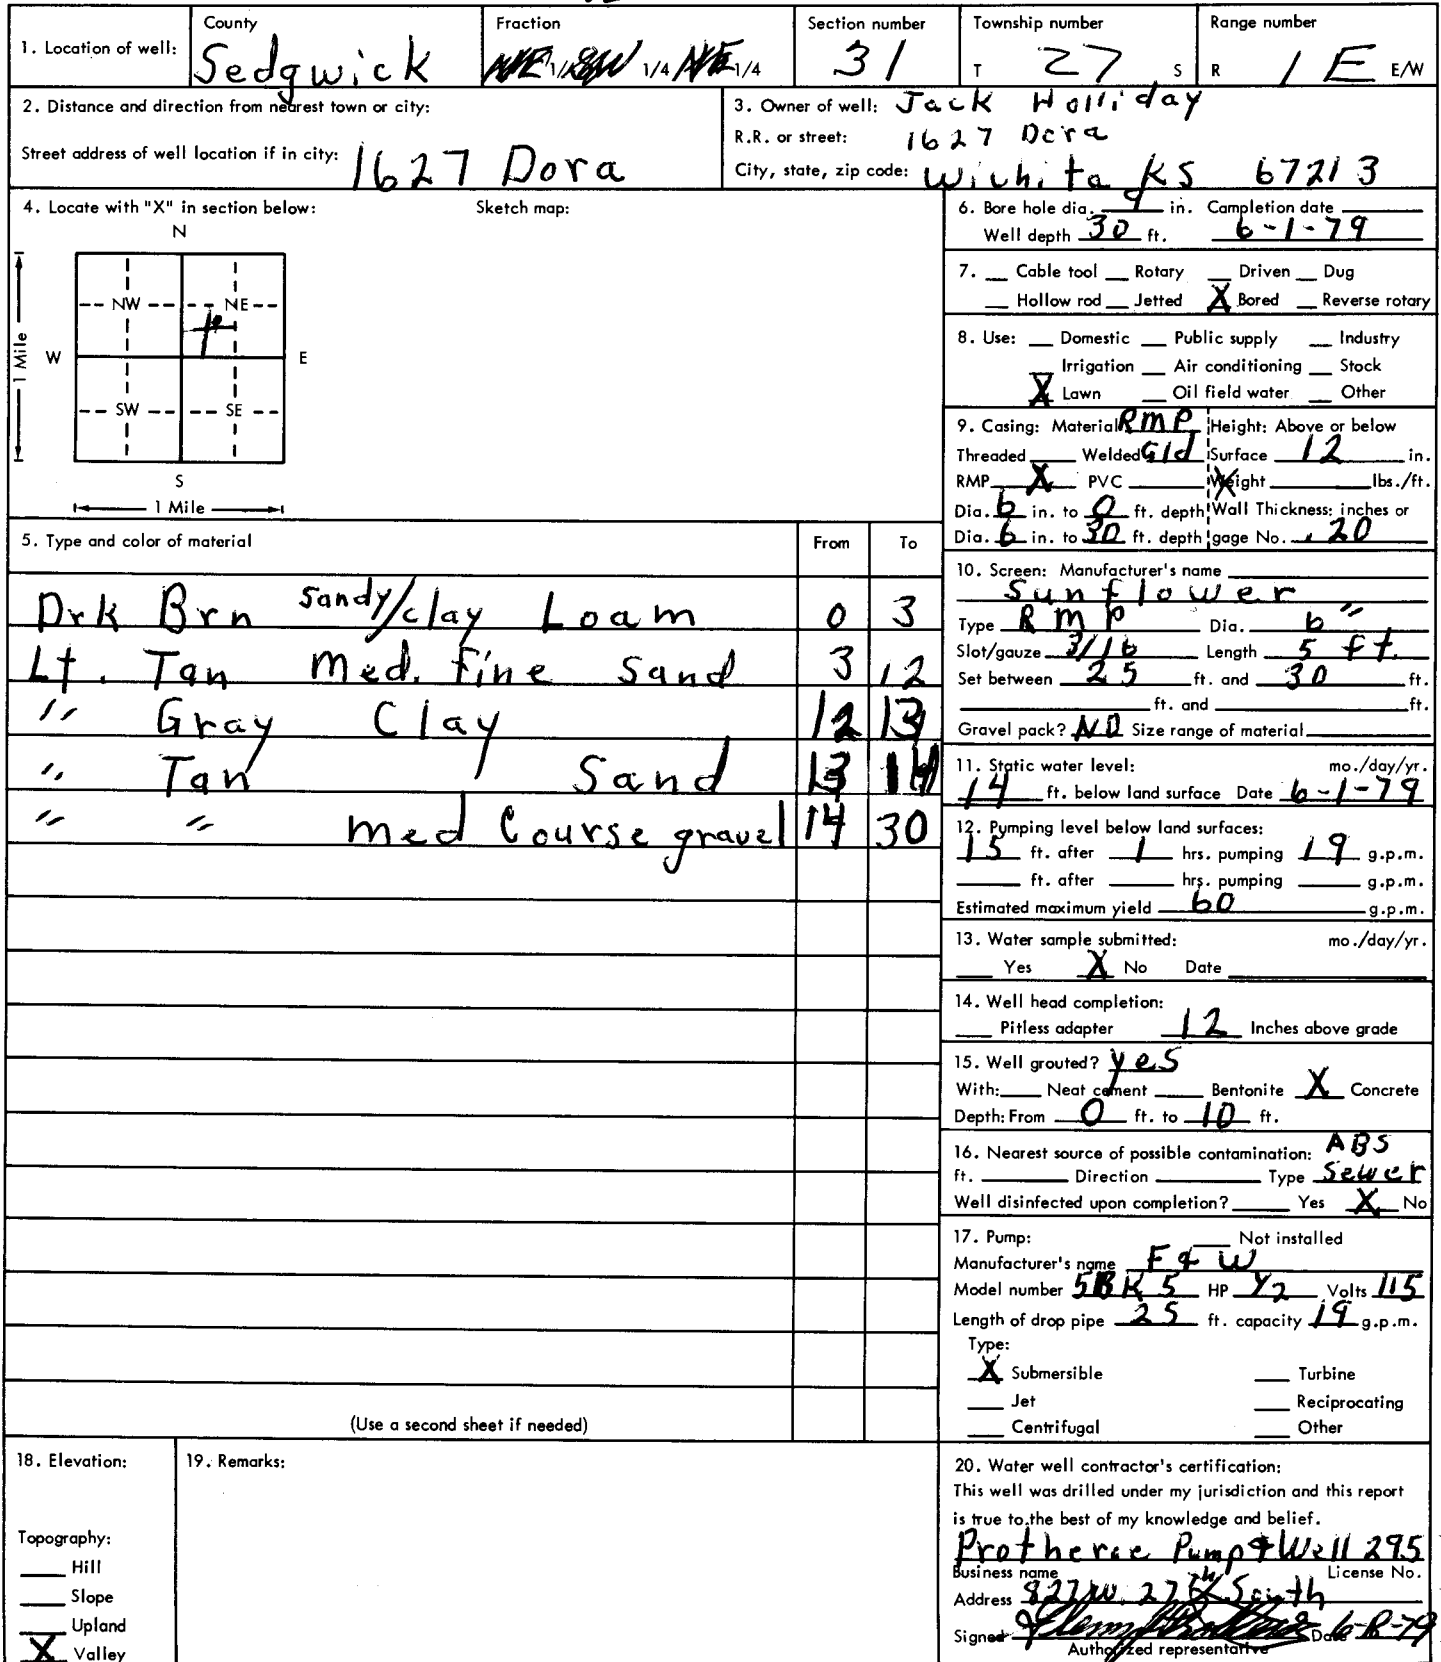 County Fraction Section number Township number Range number
1. Location of well: Sedgwick NE 1/4 SW 1/4 NE 1/4 31 T 27 S R 1 E E/W
2. Distance and direction from nearest town or city:
Street address of well location if in city: 1627 Dora
3. Owner of well: Jack Holliday
R.R. or street: 1627 Dora
City, state, zip code: Wichita KS 67213
4. Locate with "X" in section below: Sketch map:
N
NW NE
W E
1 Mile
SW SE
S
1 Mile
5. Type and color of material From To
Drk Brn sandy/clay Loam 0 3
Lt. Tan Med. Fine Sand 3 12
" Gray Clay 12 13
" Tan Sand 13 14
" " med Course gravel 14 30
(Use a second sheet if needed)
6. Bore hole dia. 9 in. Completion date
Well depth 30 ft. 6-1-79
7. Cable tool Rotary Driven Dug
Hollow rod Jetted X Bored Reverse rotary
8. Use: Domestic Public supply Industry
Irrigation Air conditioning Stock
X Lawn Oil field water Other
9. Casing: Material RMP Height: Above or below
Threaded Welded Gld Surface 12 in.
RMP X PVC Weight lbs./ft.
Dia. 6 in. to 0 ft. depth Wall Thickness: inches or
Dia. 6 in. to 30 ft. depth gage No. .20
10. Screen: Manufacturer's name
Sunflower
Type RMP Dia. 6"
Slot/gauze 3/16 Length 5 ft.
Set between 25 ft. and 30 ft.
ft. and ft.
Gravel pack? NO Size range of material
11. Static water level: mo./day/yr.
14 ft. below land surface Date 6-1-79
12. Pumping level below land surfaces:
15 ft. after 1 hrs. pumping 19 g.p.m.
ft. after hrs. pumping g.p.m.
Estimated maximum yield 60 g.p.m.
13. Water sample submitted: mo./day/yr.
Yes X No Date
14. Well head completion:
Pitless adapter 12 Inches above grade
15. Well grouted? yes
With: Neat cement Bentonite X Concrete
Depth: From 0 ft. to 10 ft.
16. Nearest source of possible contamination: ABS
ft. Direction Type Sewer
Well disinfected upon completion? Yes X No
17. Pump: Not installed
Manufacturer's name F & W
Model number 5BK5 HP 1/2 Volts 115
Length of drop pipe 25 ft. capacity 19 g.p.m.
Type:
X Submersible Turbine
Jet Reciprocating
Centrifugal Other
18. Elevation:
Topography:
Hill
Slope
Upland
X Valley
19. Remarks:
20. Water well contractor's certification:
This well was drilled under my jurisdiction and this report
is true to the best of my knowledge and belief.
Protheroe Pump & Well 295
Business name License No.
Address 827 W. 27th South
Signed Date 6-8-79
Authorized representative